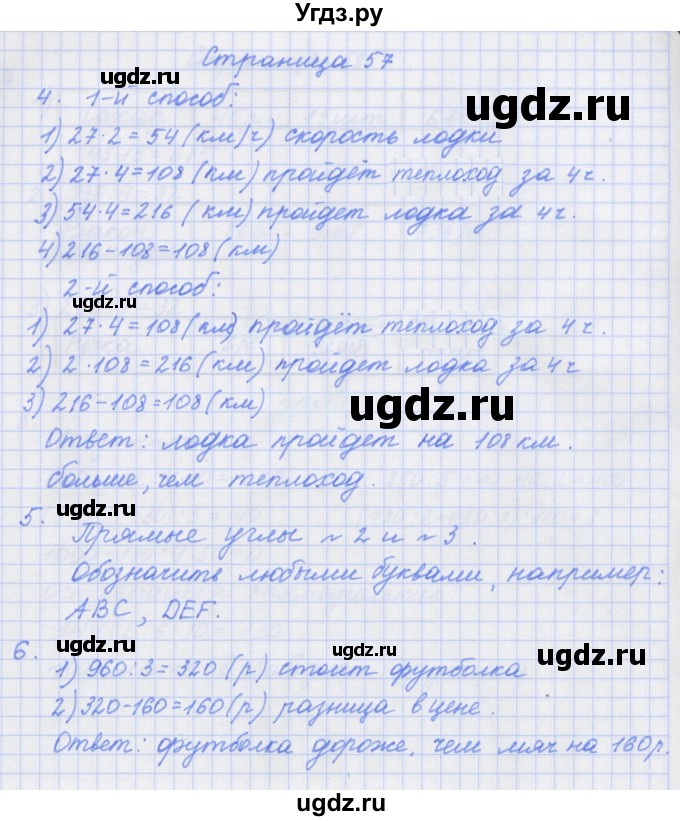 Угдз.ру
Страница 57
ugdz.ru
4. 1-й способ:
ugdz.ru
1) 27·2=54 (км/ч) скорость лодки
2) 27·4=108 (км) пройдёт теплоход за 4ч.
3) 54·4=216 (км) пройдет лодка за 4ч.
4) 216-108=108 (км)
2-й способ:
ugdz.ru
1) 27·4=108 (км) пройдёт теплоход за 4ч.
2) 2·108=216 (км) пройдет лодка за 4ч
3) 216-108=108 (км)
ugdz.ru
Ответ: лодка пройдет на 108 км.
больше, чем теплоход.
ugdz.ru
5. Прямые углы ~ 2 и ~ 3.
Обозначить любыми буквами, например:
ABC, DEF.
6. ugdz.ru ugdz.ru ugdz.ru
1) 960:3=320 (р) стоит футболка
2) 320-160=160 (р) разница в цене.
Ответ: футболка дороже, чем мяч на 160 р.
ugdz.ru